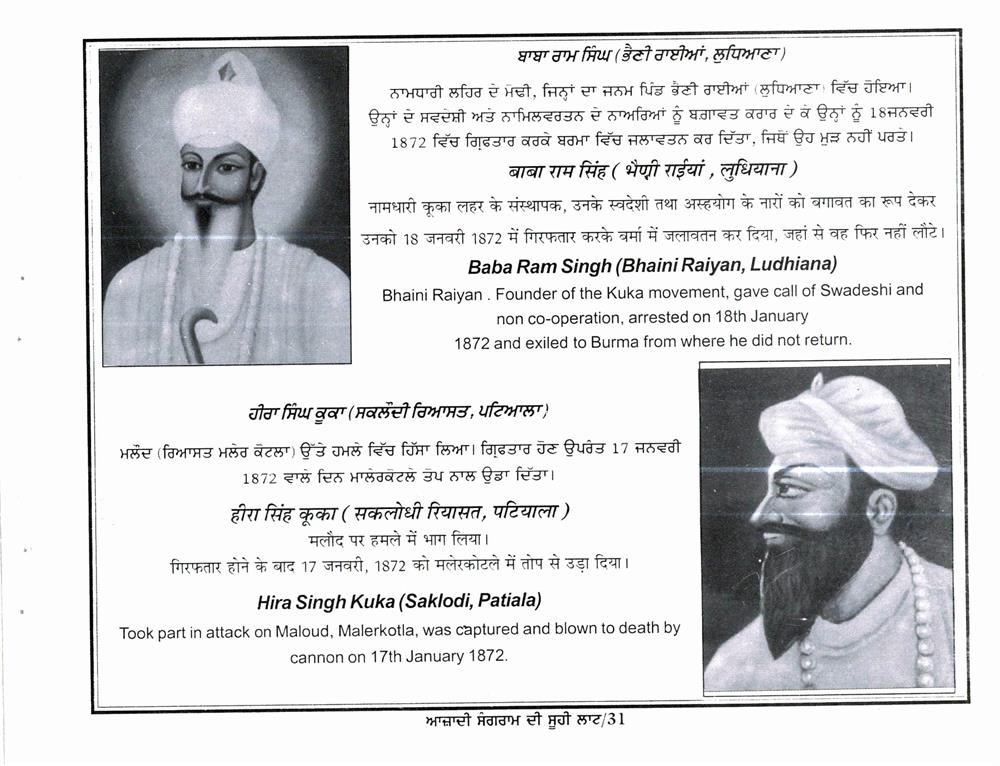 ਬਾਬਾ ਰਾਮ ਸਿੰਘ (ਭੈਣੀ ਰਾਈਆਂ, ਲੁਧਿਆਣਾ)
ਨਾਮਧਾਰੀ ਲਹਿਰ ਦੇ ਮੋਢੀ, ਜਿਨ੍ਹਾਂ ਦਾ ਜਨਮ ਪਿੰਡ ਭੈਣੀ ਰਾਈਆਂ (ਲੁਧਿਆਣਾ) ਵਿੱਚ ਹੋਇਆ।
ਉਨ੍ਹਾਂ ਦੇ ਸਵਦੇਸ਼ੀ ਅਤੇ ਨਾਮਿਲਵਰਤਨ ਦੇ ਨਾਅਰਿਆਂ ਨੂੰ ਬਗ਼ਾਵਤ ਕਰਾਰ ਦੇ ਕੇ ਉਨ੍ਹਾਂ ਨੂੰ 18ਜਨਵਰੀ
1872 ਵਿੱਚ ਗ੍ਰਿਫਤਾਰ ਕਰਕੇ ਬਰਮਾ ਵਿੱਚ ਜਲਾਵਤਨ ਕਰ ਦਿੱਤਾ, ਜਿਥੋਂ ਉਹ ਮੁੜ ਨਹੀਂ ਪਰਤੇ।
बाबा राम सिंह ( भैणी राईयां , लुधियाना )
नामधारी कूका लहर के संस्थापक, उनके स्वदेशी तथा असहयोग के नारों को बगावत का रूप देकर
उनको 18 जनवरी 1872 में गिरफतार करके वर्मा में जलावतन कर दिया, जहां से वह फिर नहीं लौटे।
Baba Ram Singh (Bhaini Raiyan, Ludhiana)
Bhaini Raiyan . Founder of the Kuka movement, gave call of Swadeshi and
non co-operation, arrested on 18th January
1872 and exiled to Burma from where he did not return.
ਹੀਰਾ ਸਿੰਘ ਕੂਕਾ (ਸਕਲੌਦੀ ਰਿਆਸਤ, ਪਟਿਆਲਾ)
ਮਲੌਦ (ਰਿਆਸਤ ਮਲੇਰ ਕੋਟਲਾ) ਉੱਤੇ ਹਮਲੇ ਵਿੱਚ ਹਿੱਸਾ ਲਿਆ। ਗ੍ਰਿਫਤਾਰ ਹੋਣ ਉਪਰੰਤ 17 ਜਨਵਰੀ
1872 ਵਾਲੇ ਦਿਨ ਮਾਲੇਰਕੋਟਲੇ ਤੋਪ ਨਾਲ ਉਡਾ ਦਿੱਤਾ।
हीरा सिंह कूका ( सकलोधी रियासत, पटियाला )
मलौद पर हमले में भाग लिया।
गिरफतार होने के बाद 17 जनवरी, 1872 को मलेरकोटले में तोप से उड़ा दिया।
Hira Singh Kuka (Saklodi, Patiala)
Took part in attack on Maloud, Malerkotla, was captured and blown to death by
cannon on 17th January 1872.
ਆਜ਼ਾਦੀ ਸੰਗਰਾਮ ਦੀ ਸੂਹੀ ਲਾਟ/31